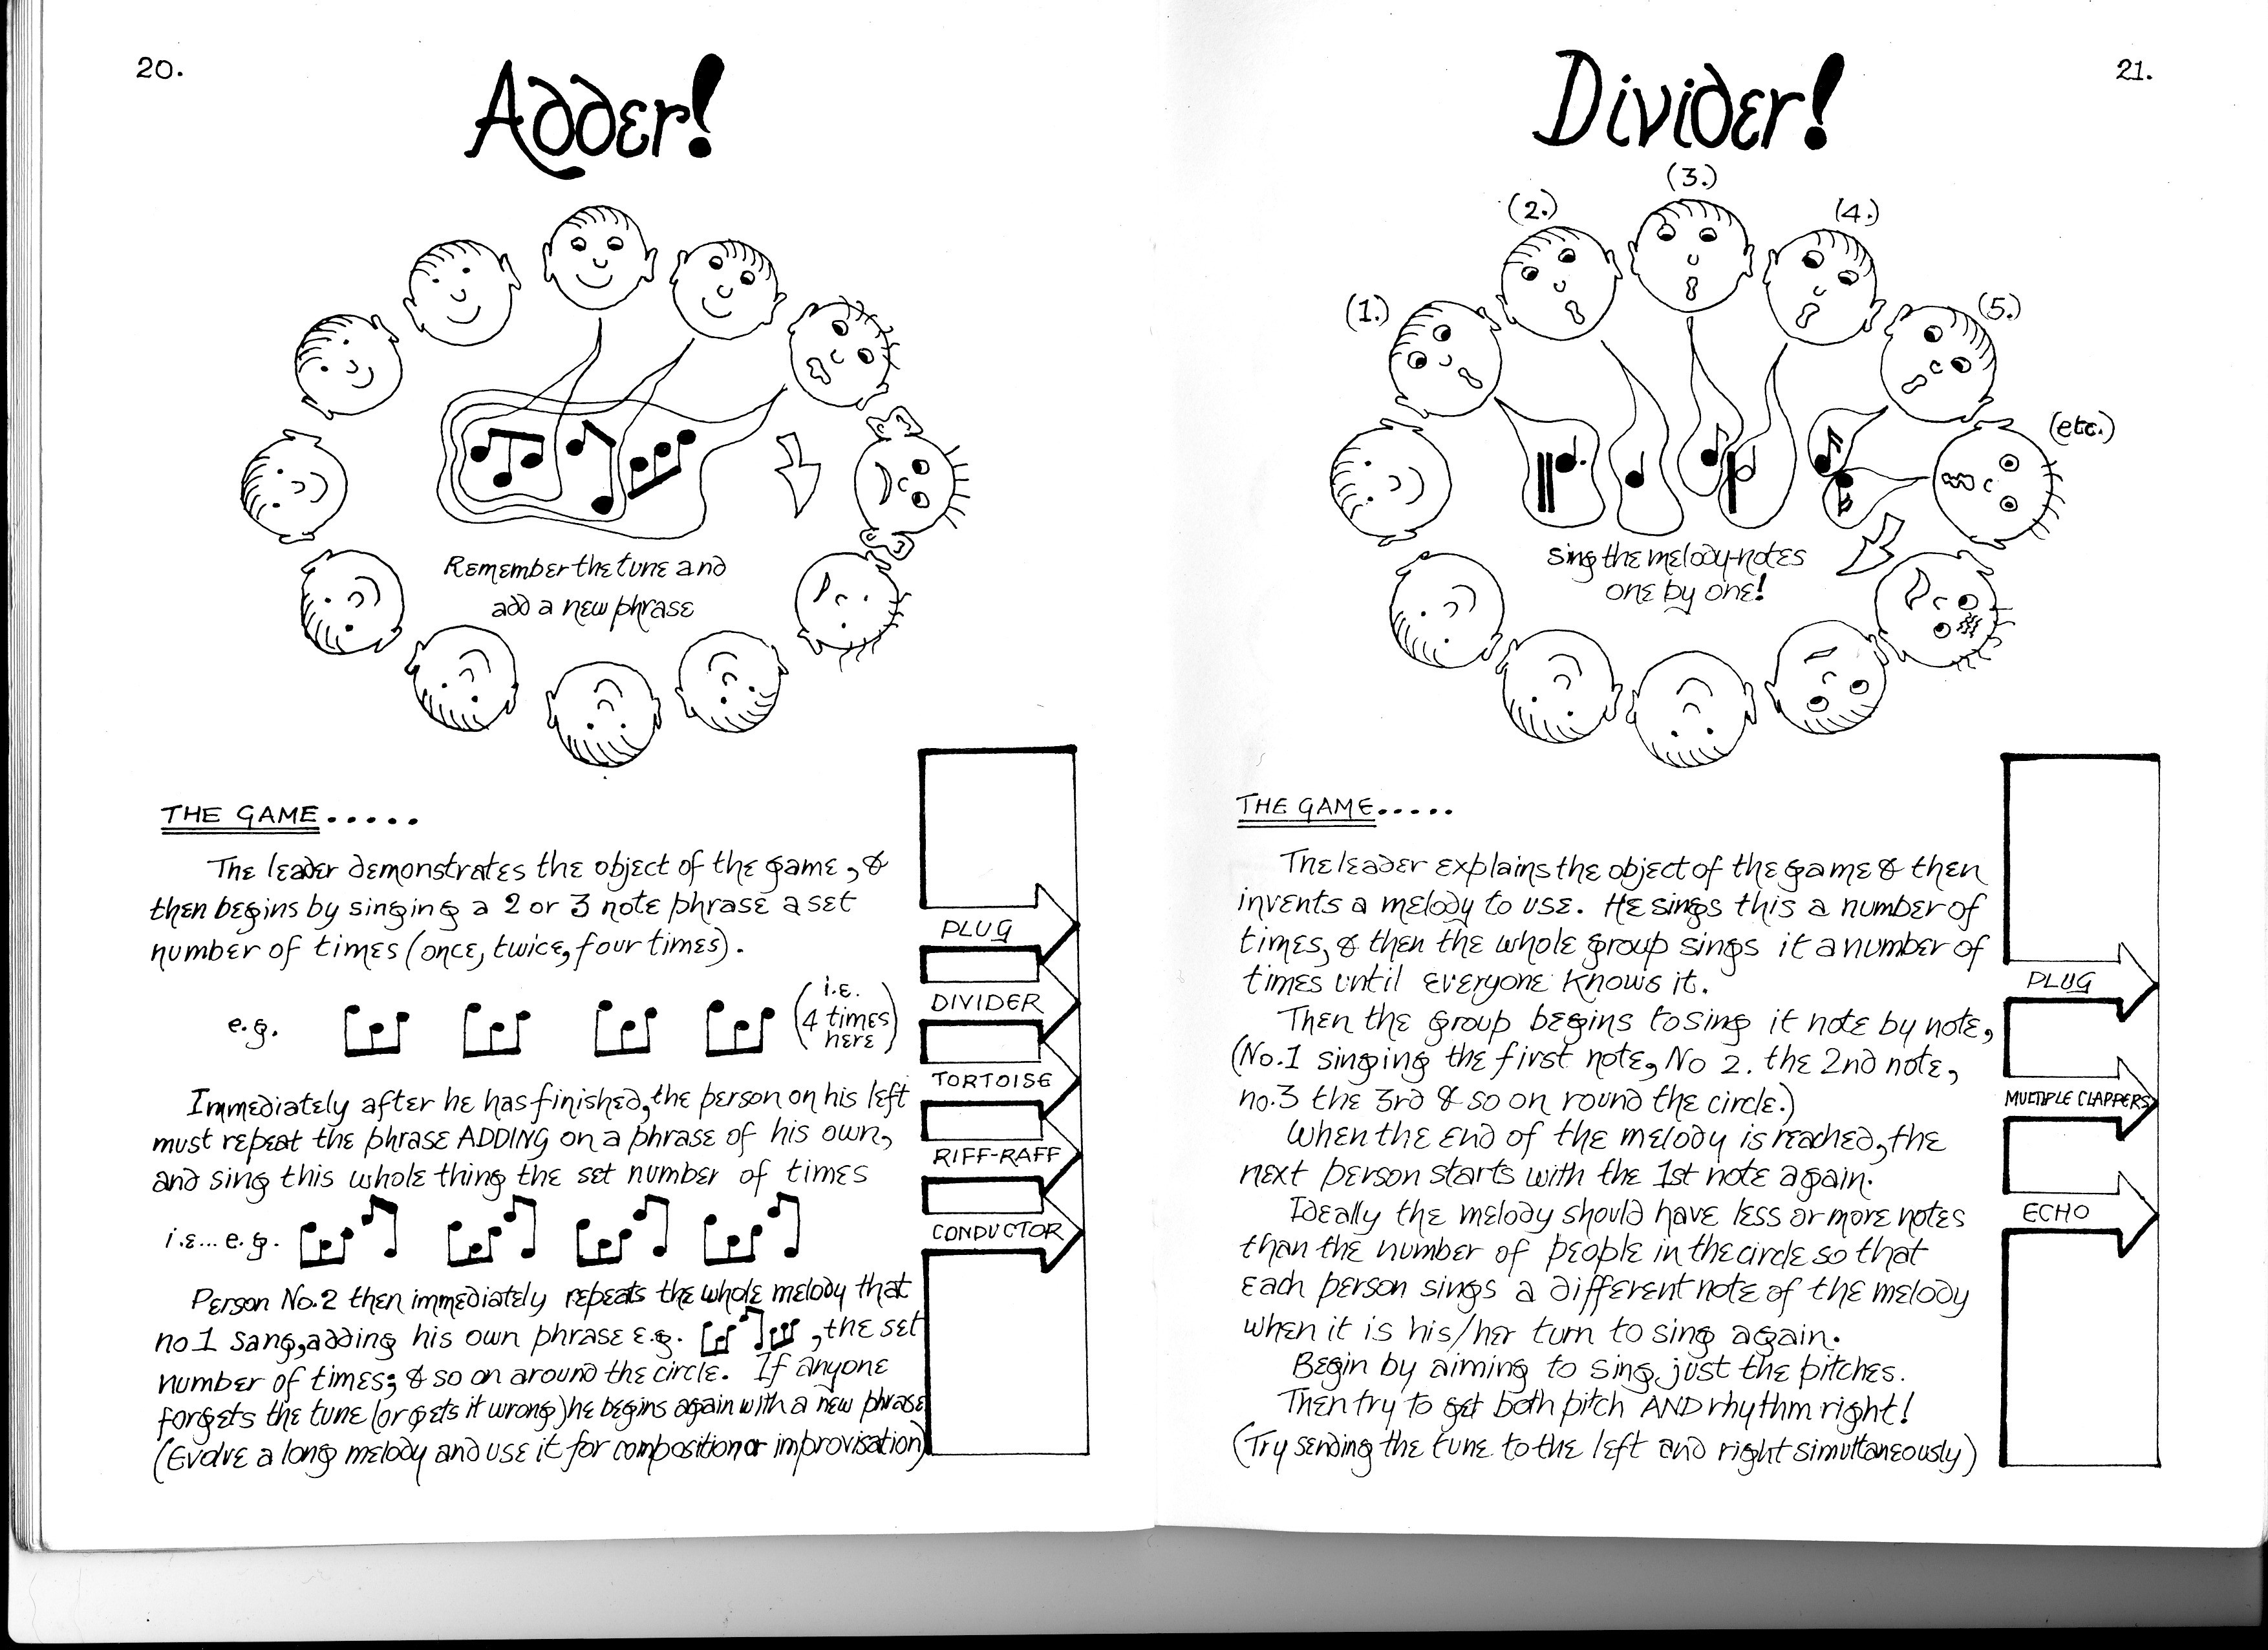 20.
Adder!
Remember the tune and
add a new phrase
THE GAME.....
The leader demonstrates the object of the game, &
then begins by singing a 2 or 3 note phrase a set
number of times (once, twice, four times).
e.g.
(i.e.
4 times
here)
Immediately after he has finished, the person on his left
must repeat the phrase ADDING on a phrase of his own,
and sing this whole thing the set number of times
i.e... e.g.
Person No.2 then immediately repeats the whole melody that
no 1 sang, adding his own phrase e.g. , the set
number of times; & so on around the circle. If anyone
forgets the tune (or gets it wrong) he begins again with a new phrase
(Evolve a long melody and use it for composition or improvisation)
PLUG
DIVIDER
TORTOISE
RIFF-RAFF
CONDUCTOR
21.
Divider!
(1.)
(2.)
(3.)
(4.)
(5.)
(etc.)
sing the melody-notes
one by one!
THE GAME.....
The leader explains the object of the game & then
invents a melody to use. He sings this a number of
times, & then the whole group sings it a number of
times until everyone knows it.
Then the group begins to sing it note by note,
(No.1 singing the first note, No 2. the 2nd note,
no.3 the 3rd & so on round the circle.)
When the end of the melody is reached, the
next person starts with the 1st note again.
Ideally the melody should have less or more notes
than the number of people in the circle so that
each person sings a different note of the melody
when it is his/her turn to sing again.
Begin by aiming to sing just the pitches.
Then try to get both pitch AND rhythm right!
(Try sending the tune to the left and right simultaneously)
PLUG
MULTIPLE CLAPPERS
ECHO